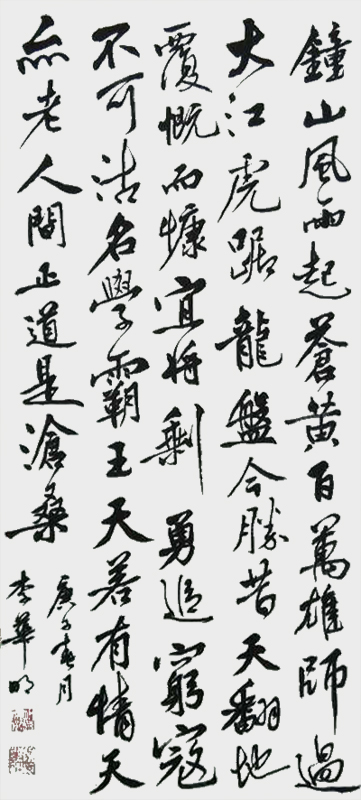 鐘山風雨起蒼黃百萬雄師過
大江虎踞龍盤今勝昔天翻地
覆慨而慷宜將剩勇追窮寇
不可沽名學霸王天若有情天
亦老人間正道是滄桑
庚子春月
李華明